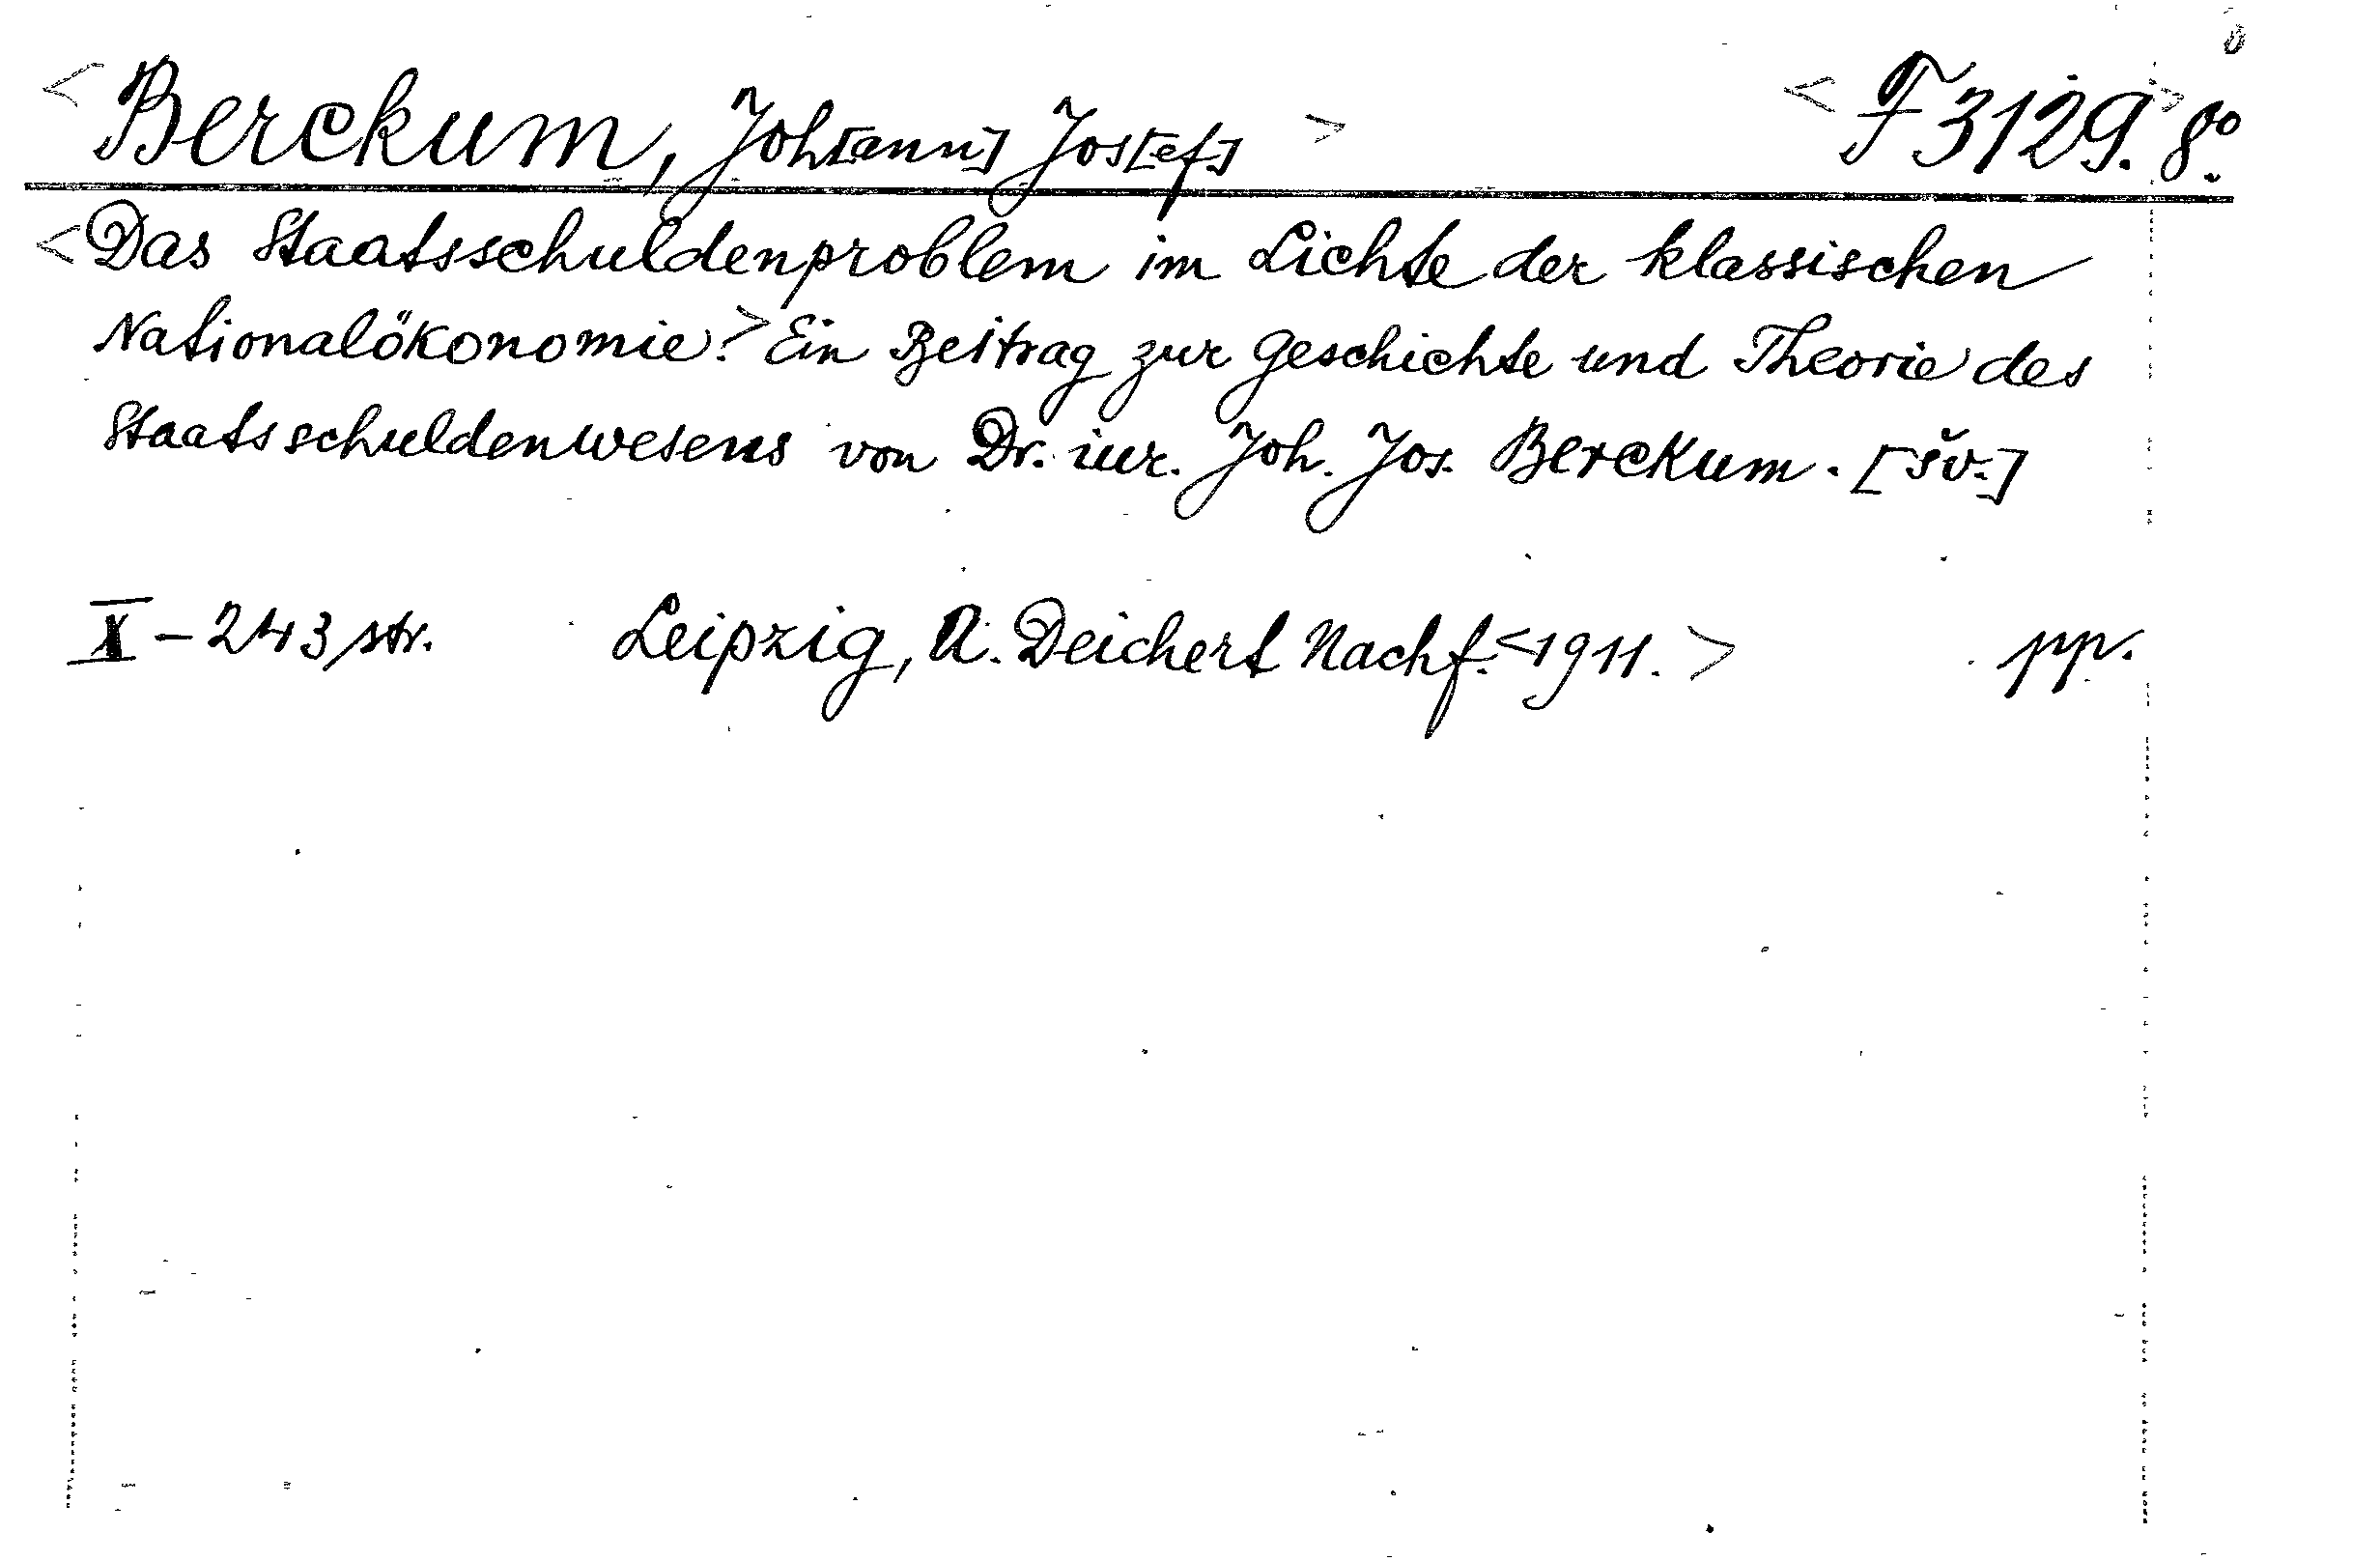 <Berckum, Joh[ann] Jos[ef.]> <F 3129.> 8°.
<Das Staatsschuldenproblem im Lichte der klassischen
Nationalökonomie.> Ein Beitrag zur Geschichte und Theorie des
Staatsschuldenwesens von Dr. iur. Joh. Jos. Berckum. [šv.]
X - 243 str. Leipzig, A. Deichert Nachf. <1911.> pp.